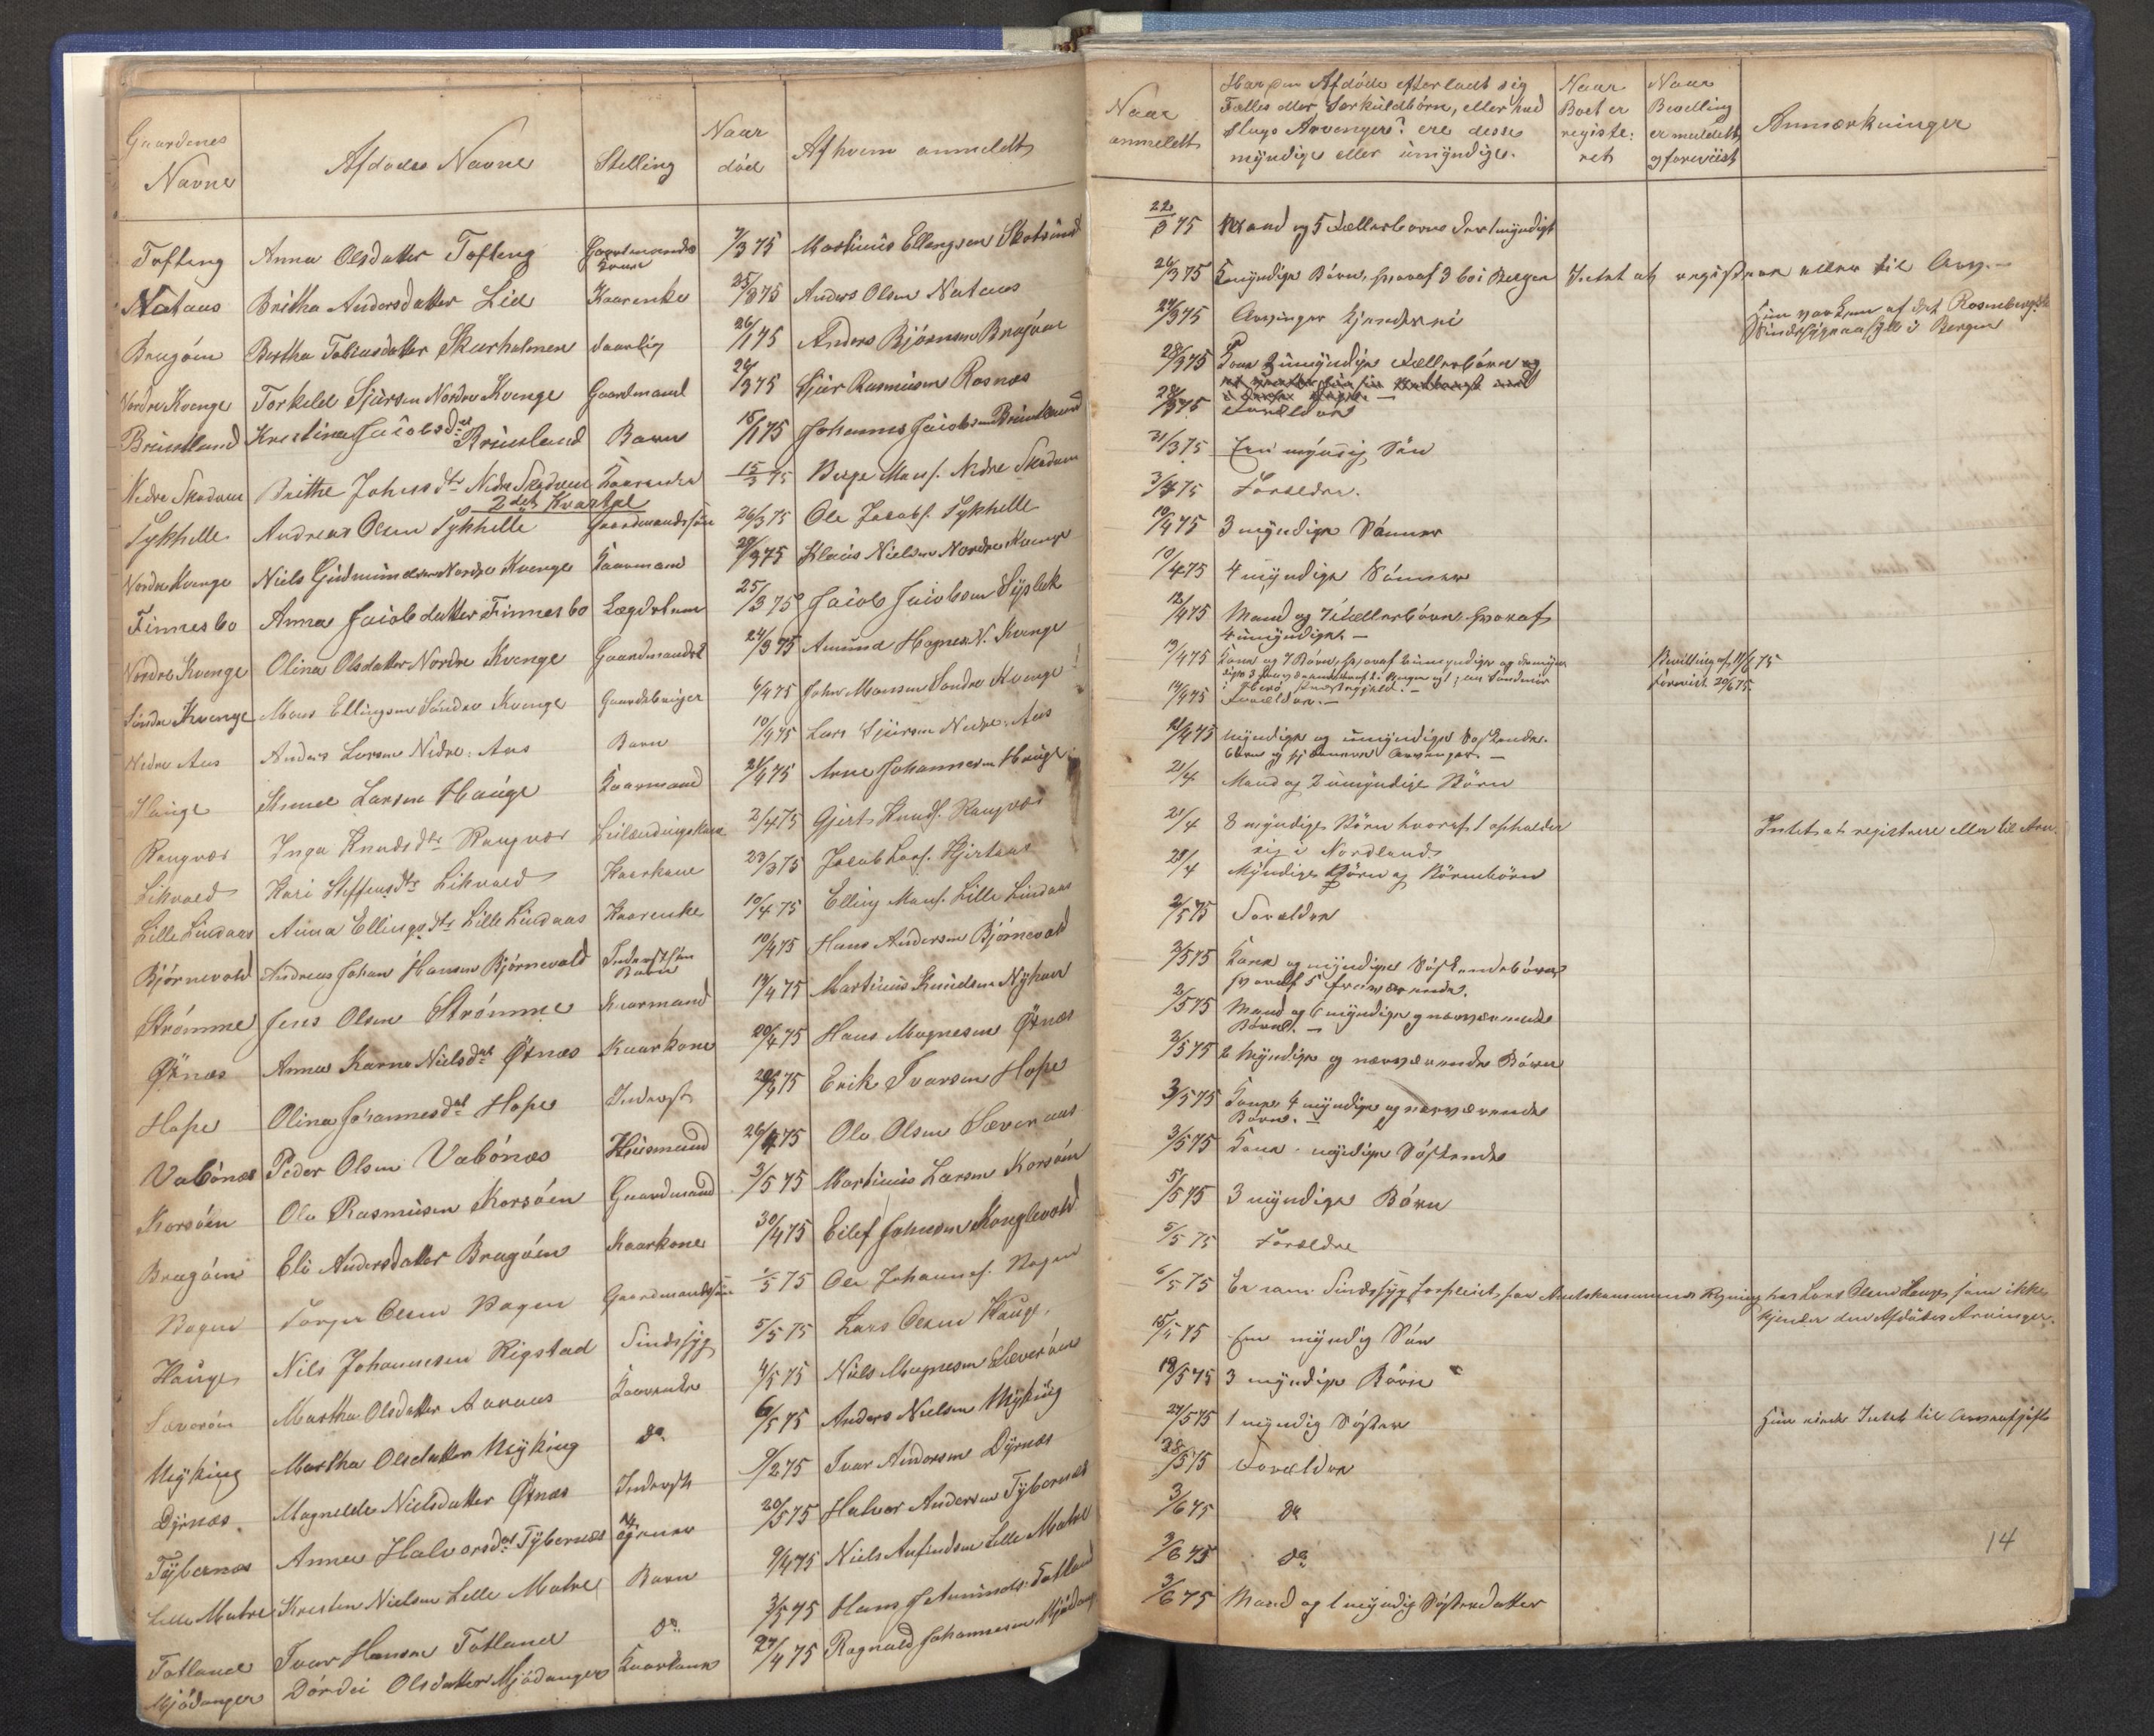 Gaardenes Navne | Afdødes Navne | Stelling | Naar død | Af hvem anmeldt
Tofteng | Anna Olsdatter Tofteng | Gaardmands Kone | 7/3 75 | Martinus Ellingsen Skotsund
Nataas | Britha Andersdatter Lid | Kaarenke | 25/3 75 | Anders Olsen Nataas
Bragøen | Bertha Tobiasdatter Skarholmen | daarlig | 26/1 75 | Anders Bjørnsen Bragøen
Nordre Kvenge | Torkild Sjursen Nordre Kvenge | Gaardmand | 3 75 | Sjur Rasmusen Rosnes
Bruntland | Kristina Jacobsdr Bruntland | Barn | 15/1 75 | Johannes Jacobsen Bruntland
Nedre Skodven | Brithe Johnsdtr Nedre Skodven | Kaarenke | 15/3 75 | Berge Mons. Nedre Skodven
2det Kvartal
Sykhelle | Andreas Olsen Sykhelle | Gaardmandssøn | 26/3 75 | Ole Jacobs. Sykhelle
Nordre Kvenge | Niels Gudmundsen Nordre Kvenge | Kaarmand | 29/3 75 | Klaus Nielsen Nordre Kvenge
Finnesbo | Anna Jacobdatter Finnesbo | Lægdslem | 25/3 75 | Jacob Jacobsen Syslek
Nordre Kvenge | Olina Olsdatter Nordre Kvenge | Gaardmandsk | 24/3 75 | Amund Hognes. N. Kvenge
Søndre Kvenge | Mons Ellingsen Søndre Kvenge | Gaardbruger | 6/4 75 | John Monsen Søndre Kvenge
Nedre Aas | Anders Larsen Nedre: Aas | Barn | 10/4 75 | Lars Sjursen Nedre: Aas
Hauge | Larsen Hauge | Kaarmand | 21/4 75 | Arne Johannesen Hauge
Rangvær | Inga Knudsdtr Rangvær | Leilændingskone | 2/4 75 | Gjert Knuds. Rangvær
Likvold | Kari Steffensdtr Likvold | Kaarkone | 23/3 75 | Jacob Lars. Hjertaas
Lille Lindaas | Anna Ellingsdtr Lille Lindaas | Kaarenke | 10/4 75 | Elling Mons. Lille Lindaas
Bjørnevold | Andreas Johan Hansen Bjørnevold | Inderstsøn Barn | 10/4 75 | Hans Andersen Bjørnevold
Strømme | Jens Olsen Strømme | Kaarmand | 19/4 75 | Martinus Knudsen Nyhavn
Øxnæs | Anna Karna Nielsdat Øxnæs | Kaarkone | 20/4 75 | Hans Magnesen Øxnæs
Hope | Olina Johannesdat Hope | Inderst | 4 75 | Erik Ivarsen Hope
Vabønæs | Peder Olsen Vabønæs | Husmand | 26/4 75 | Ole Olsen Sævraas
Korsøen | Ole Rasmusen Korsøen | Gaardmand | 3/5 75 | Martinus Larsen Korsøen
Bragøen | Eli Andersdatter Bragøen | Kaarkone | 30/4 75 | Eilef Johnsen Konglevold
Vogen | Torger Olsen Vogen | Gaardmandssøn | 1/5 75 | Ole Johannes. Vogen
Hauge | Nils Johannesen Rigstad | Sindssyg | 5/5 75 | Lars Olsen Hauge.
Sæverøen | Martha Olsdatter Aaraas | Kaarenke | 4/5 75 | Niels Magnesen Sæverøen
Myking | Martha Olsdatter Myking | do | 6/5 75 | Anders Nielsen Myking
Dyrnæs | Magnilde Nielsdatter Øxnæs | Inderst | 9/2 75 | Ivar Andersen Dyrnæs
Tybernæs | Anna Halvorsdat Tybernæs | | 20/5 75 | Halvor Andersen Tybernæs
Lille Matre | Kristen Nielsen Lille Matre | Barn | 9/4 75 | Niels Anfindsen Lille Matre
Totland | Ivar Hansen Totland | do. | 3/5 75 | Hans J. Amunds. Totland
Mjødanger | Dørdei Olsdatter Mjødanger | Kaarkone | 27/4 75 | Ragnald Johannesen Mjødanger
Naar anmeldt | Har den Afdøde efterladt sig Fælles eller Særkuldbørn, eller hvad Slags Arvinger? ere disse myndige eller umyndige. | Naar Boet er registe: ret | Naar Bevilling er meddelt, og foreviist | Anmærkninger
22/3 75 | Mand og 5 Fællesbørn der 1 myndigt
26/3 75 | myndige Børn, hvoraf 3 bor i Bergen | Intet at registrere eller til Arv.-
27/3 75 | Arvinger kjendes ei | Hun var Lem af det Rosenbergske Sindssygeasyl i Bergen
28/3 75 | Kone 2 umyndige Fællesbørn og
28/3 75 | Forældre
31/3 75 | Een myndig Søn
3/4 75 | Forældre.
10/4 75 | 3 myndige Sønner
10/4 75 | 4 myndige Sønner
12/4 75 | Mand og 7 Fællesbørn, hvoraf 4 umyndige. -
13/4 75 | Kone og 7 Børn, hvoraf 2 umyndige og | Bevilling af 11/6 75 Forevist 20/6 75
14/4 75 | Forældre.-
21/4 75 | myndige og umyndige Søskende. Børn og fjærnere Arvinger -
21/4 | Mand og 2 umyndige Børn
21/4 | 8 myndige Børn hvoraf 1 opholder sig i Nordland | Intet at registrere eller til Arv.
28/4 | Myndige Børn og Børnebørn
2/5 75 | Forældre
2/5 75 | Kone og myndige Søskendebørn, hvoraf 5 fraværende.
2/5 75 | Mand og 6 myndige nærværende Børn. -
2/5 75 | 2 myndige og nærværende Børn
3/5 75 | Kone, 4 myndige og nærværende Børn. -
3/5 75 | Kone. myndige Søskende
5/5 75 | 3 myndige Børn
5/5 75 | Forældre
6/5 75 | Er som Sindssyg forpleiet, paa Amtskommunens Regning hos Lars Olsen Hauge som ikke kjender den Afdødes Arvinger.
15/5 75 | Een myndig Søn
18/5 75 | 3 myndige Børn
27/5 75 | 1 myndig Søster | Hun eiede Intet til Arveafgift
28/5 75 | Forældre
3/6 75 | do
3/6 75 | do
3/6 75 | Mand og 1 myndig Søsterdatter
14